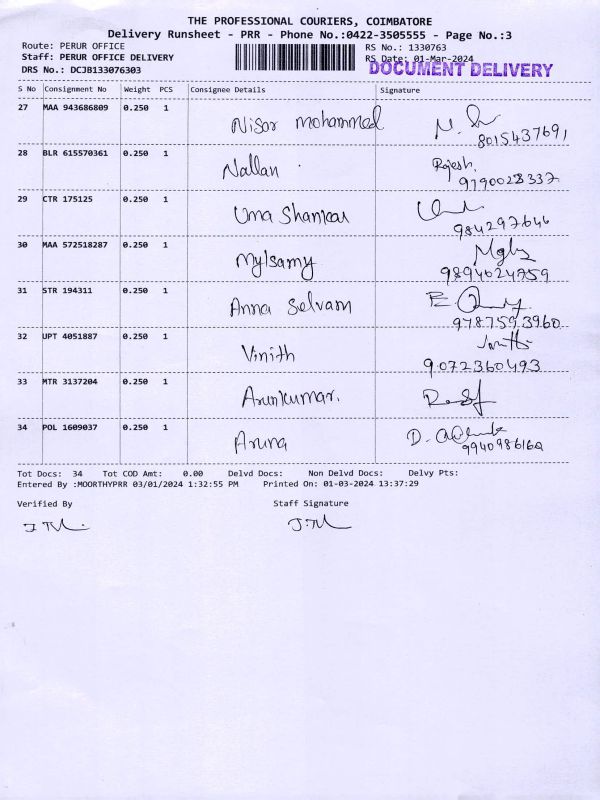 THE PROFESSIONAL COURIERS, COIMBATORE
Delivery Runsheet - PRR - Phone No.:0422-3505555 - Page No.:3
Route: PERUR OFFICE RS No.: 1330763
Staff: PERUR OFFICE DELIVERY RS Date: 01-Mar-2024
DRS No.: DCJB133076303 DOCUMENT DELIVERY
S No Consignment No Weight PCS Consignee Details Signature
27 MAA 943686809 0.250 1 Nisar mohammed
8015437691
28 BLR 615570361 0.250 1 Nallan Rajesh
9190028337
29 CTR 175125 0.250 1 Uma Shankar
984297646
30 MAA 572518287 0.250 1 Mylsamy
9894624759
31 STR 194311 0.250 1 Anna Selvam
9787593960
32 UPT 4051887 0.250 1 Vinith
9072360493
33 MTR 3137204 0.250 1 Arunkumar.
34 POL 1609037 0.250 1 Aruna
Tot Docs: 34 Tot COD Amt: 0.00 Delvd Docs: Non Delvd Docs: Delvy Pts:
Entered By :MOORTHYPRR 03/01/2024 1:32:55 PM Printed On: 01-03-2024 13:37:29
Verified By Staff Signature